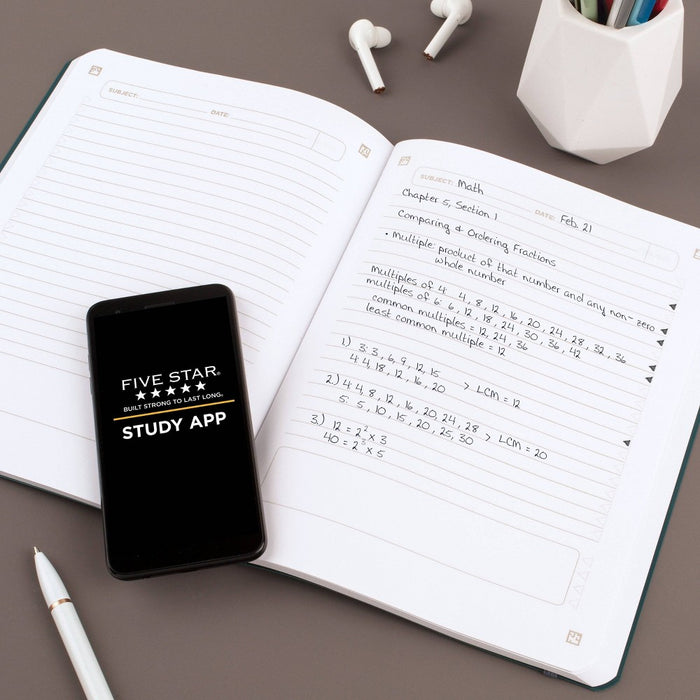 SUBJECT:
DATE:
SUBJECT: Math
DATE: Feb. 21
Chapter 5, Section 1
Comparing & Ordering Fractions
• Multiple: product of that number and any non-zero
whole number
multiples of 4: 4, 8, 12, 16, 20, 24, 28, 32, 36
multiples of 6: 6, 12, 18, 24, 30, 36, 42
common multiples = 12, 24, 36
least common multiple = 12
1.) 3: 3, 6, 9, 12, 15
4: 4, 18, 12, 16, 20 > LCM = 12
2.) 4: 4, 8, 12, 16, 20, 24, 28
5: 5, 10, 15, 20, 25, 30 > LCM = 20
3.) 12 = 2² x 3
40 = 2³ x 5
FIVE STAR®
★★★★★
BUILT STRONG TO LAST LONG.
STUDY APP